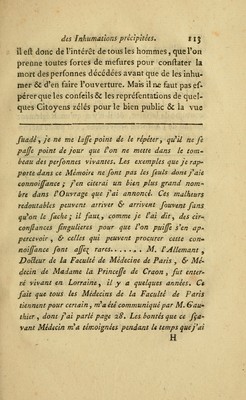 des Inhumations précipitées. 113
il est donc de l'intérêt de tous les hommes, que l'on
prenne toutes sortes de mesures pour constater la
mort des personnes décédées avant que de les inhu-
mer & d'en faire l'ouverture. Mais il ne faut pas es-
pérer que les conseils & les représentations de quel-
ques Citoyens zélés pour le bien public & la vue
suadé, je ne me lasse point de le répéter, qu'il ne se
passe point de jour que l'on ne mette dans le tom-
beau des personnes vivantes. Les exemples que je rap-
porte dans ce Mémoire ne sont pas les seuls dont j'aie
connoissance; j'en citerai un bien plus grand nom-
bre dans l'Ouvrage que j'ai annoncé. Ces malheurs
redoutables peuvent arriver & arrivent souvent sans
qu'on le sache; il faut, comme je l'ai dit, des cir-
constances singulieres pour que l'on puisse s'en ap-
percevoir, & celles qui peuvent procurer cette con-
noissance sont assez rares....... M. l'Allemant,
Docteur de la Faculté de Médecine de Paris, & Mé-
decin de Madame la Princesse de Craon, fut enter-
ré vivant en Lorraine, il y a quelques années. Ce
fait que tous les Médecins de la Faculté de Paris
tiennent pour certain, m'a été communiqué par M. Gau-
thier, dont j'ai parlé page 28. Les bontés que ce sça-
vant Médecin m'a témoignées pendant le temps que j'ai
H